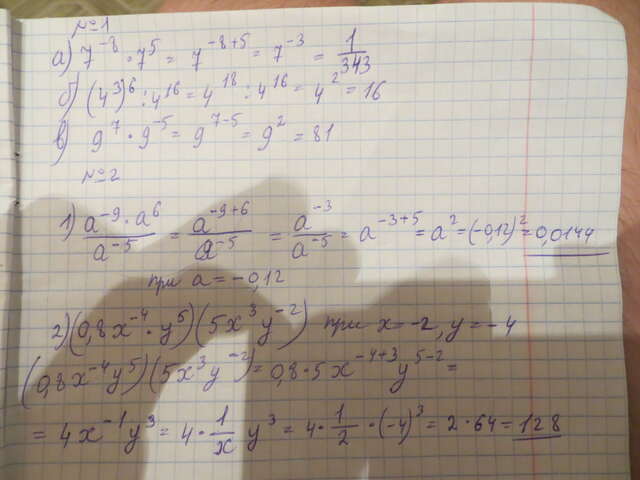 №1
а) 7⁻⁸ · 7⁵ = 7⁻⁸⁺⁵ = 7⁻³ = 1/343
б) (4³)⁶ : 4¹⁶ = 4¹⁸ : 4¹⁶ = 4² = 16
в) 9⁷ · 9⁻⁵ = 9⁷⁻⁵ = 9² = 81
№2
1) a⁻⁹ · a⁶ / a⁻⁵ = a⁻⁹⁺⁶ / a⁻⁵ = a⁻³ / a⁻⁵ = a⁻³⁺⁵ = a² = (-0,12)² = 0,0144
при a = -0,12
2) (0,8x⁻⁴ · y⁵)(5x³y⁻²) при x = -2, y = -4
(0,8x⁻⁴y⁵)(5x³y⁻²) = 0,8 · 5x⁻⁴⁺³y⁵⁻² =
= 4x⁻¹y³ = 4 · 1/x y³ = 4 · 1/2 · (-4)³ = 2 · 64 = 128